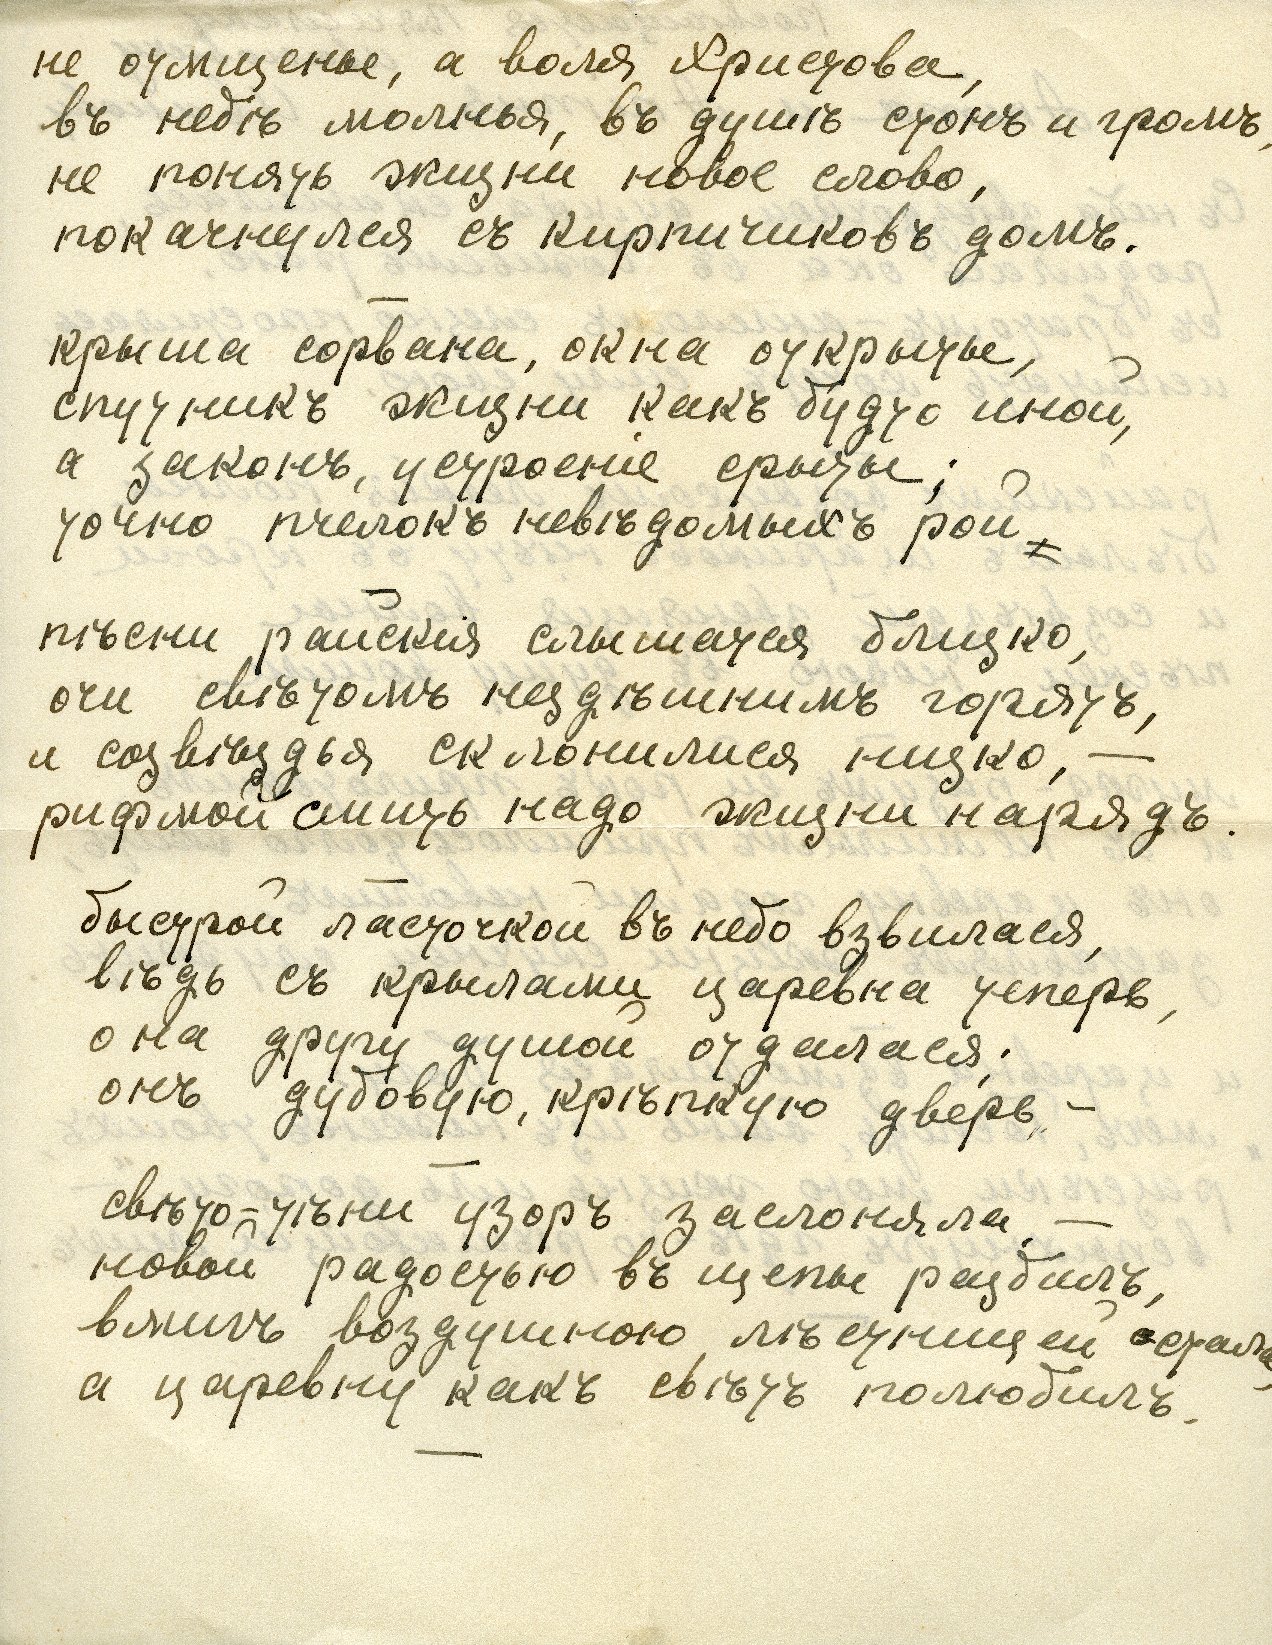 не отмщенье, а воля Христова,
въ небѣ молнья, въ душѣ стонъ и громъ,
не понять жизни новое слово,
покачнулся съ кирпичиковъ домъ.
—
крыша сорвана, окна открыты,
спутникъ жизни какъ будто иной,
а законъ, устроеніе срыты;
точно пчелокъ невѣдомыхъ рой
—
пѣсни райскія слышатся близко,
очи свѣтомъ нездѣшнимъ горятъ,
и созвѣздья склонилися низко, —
рифмой сшить надо жизни нарядъ.
—
быстрой ласточкой въ небо взвилася,
вѣдь съ крылами царевна теперь,
она другу душой отдалася;
онъ дубовую, крѣпкую дверь, —
—
свѣто-тѣни узоръ заслоняла, —
новой радостью въ щепы разбилъ,
вмигъ воздушною лѣстницей стала,
а царевну какъ свѣтъ полюбилъ.
—